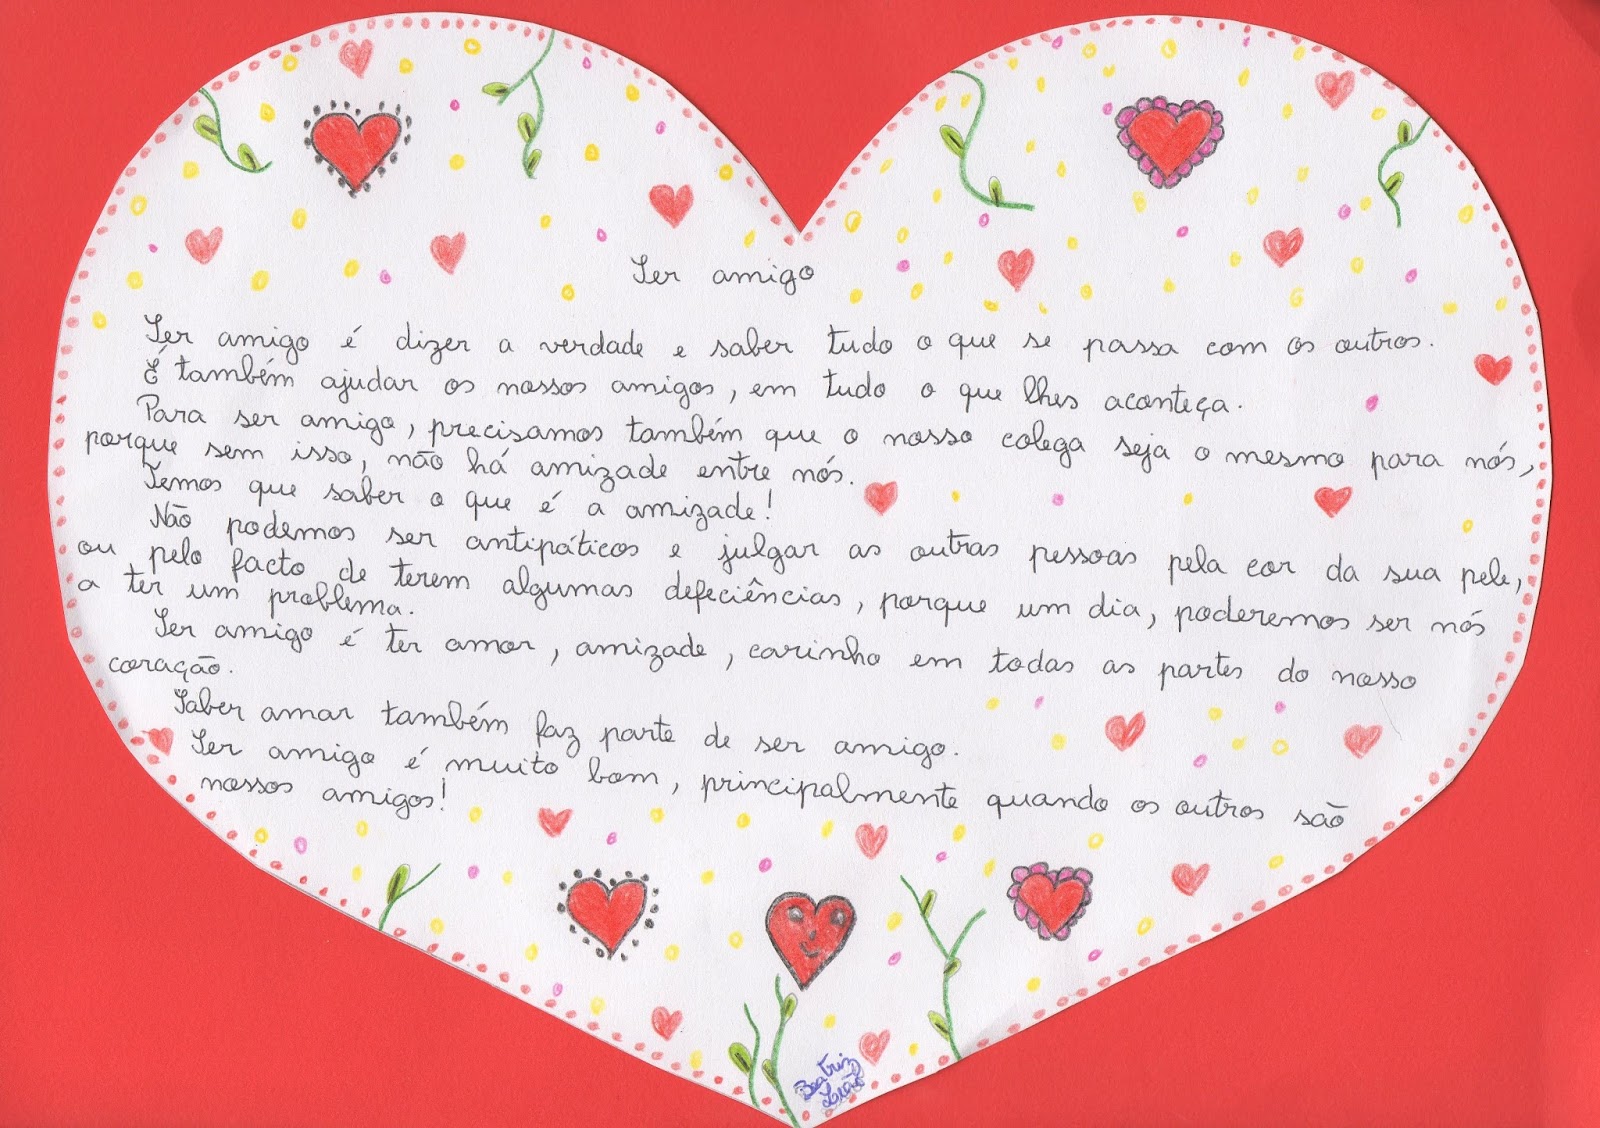 Ser amigo
Ser amigo é dizer a verdade e saber tudo o que se passa com os outros.
É também ajudar os nossos amigos, em tudo o que lhes aconteça.
Para ser amigo, precisamos também que o nosso colega seja o mesmo para nós,
porque sem isso, não há amizade entre nós.
Temos que saber o que é a amizade!
Não podemos ser antipáticos e julgar as outras pessoas pela cor da sua pele,
ou pelo facto de terem algumas defeciências, porque um dia, poderemos ser nós
a ter um problema.
Ser amigo é ter amor, amizade, carinho em todas as partes do nosso
coração.
Saber amar também faz parte de ser amigo.
Ser amigo é muito bom, principalmente quando os outros são
nossos amigos!
Beatriz